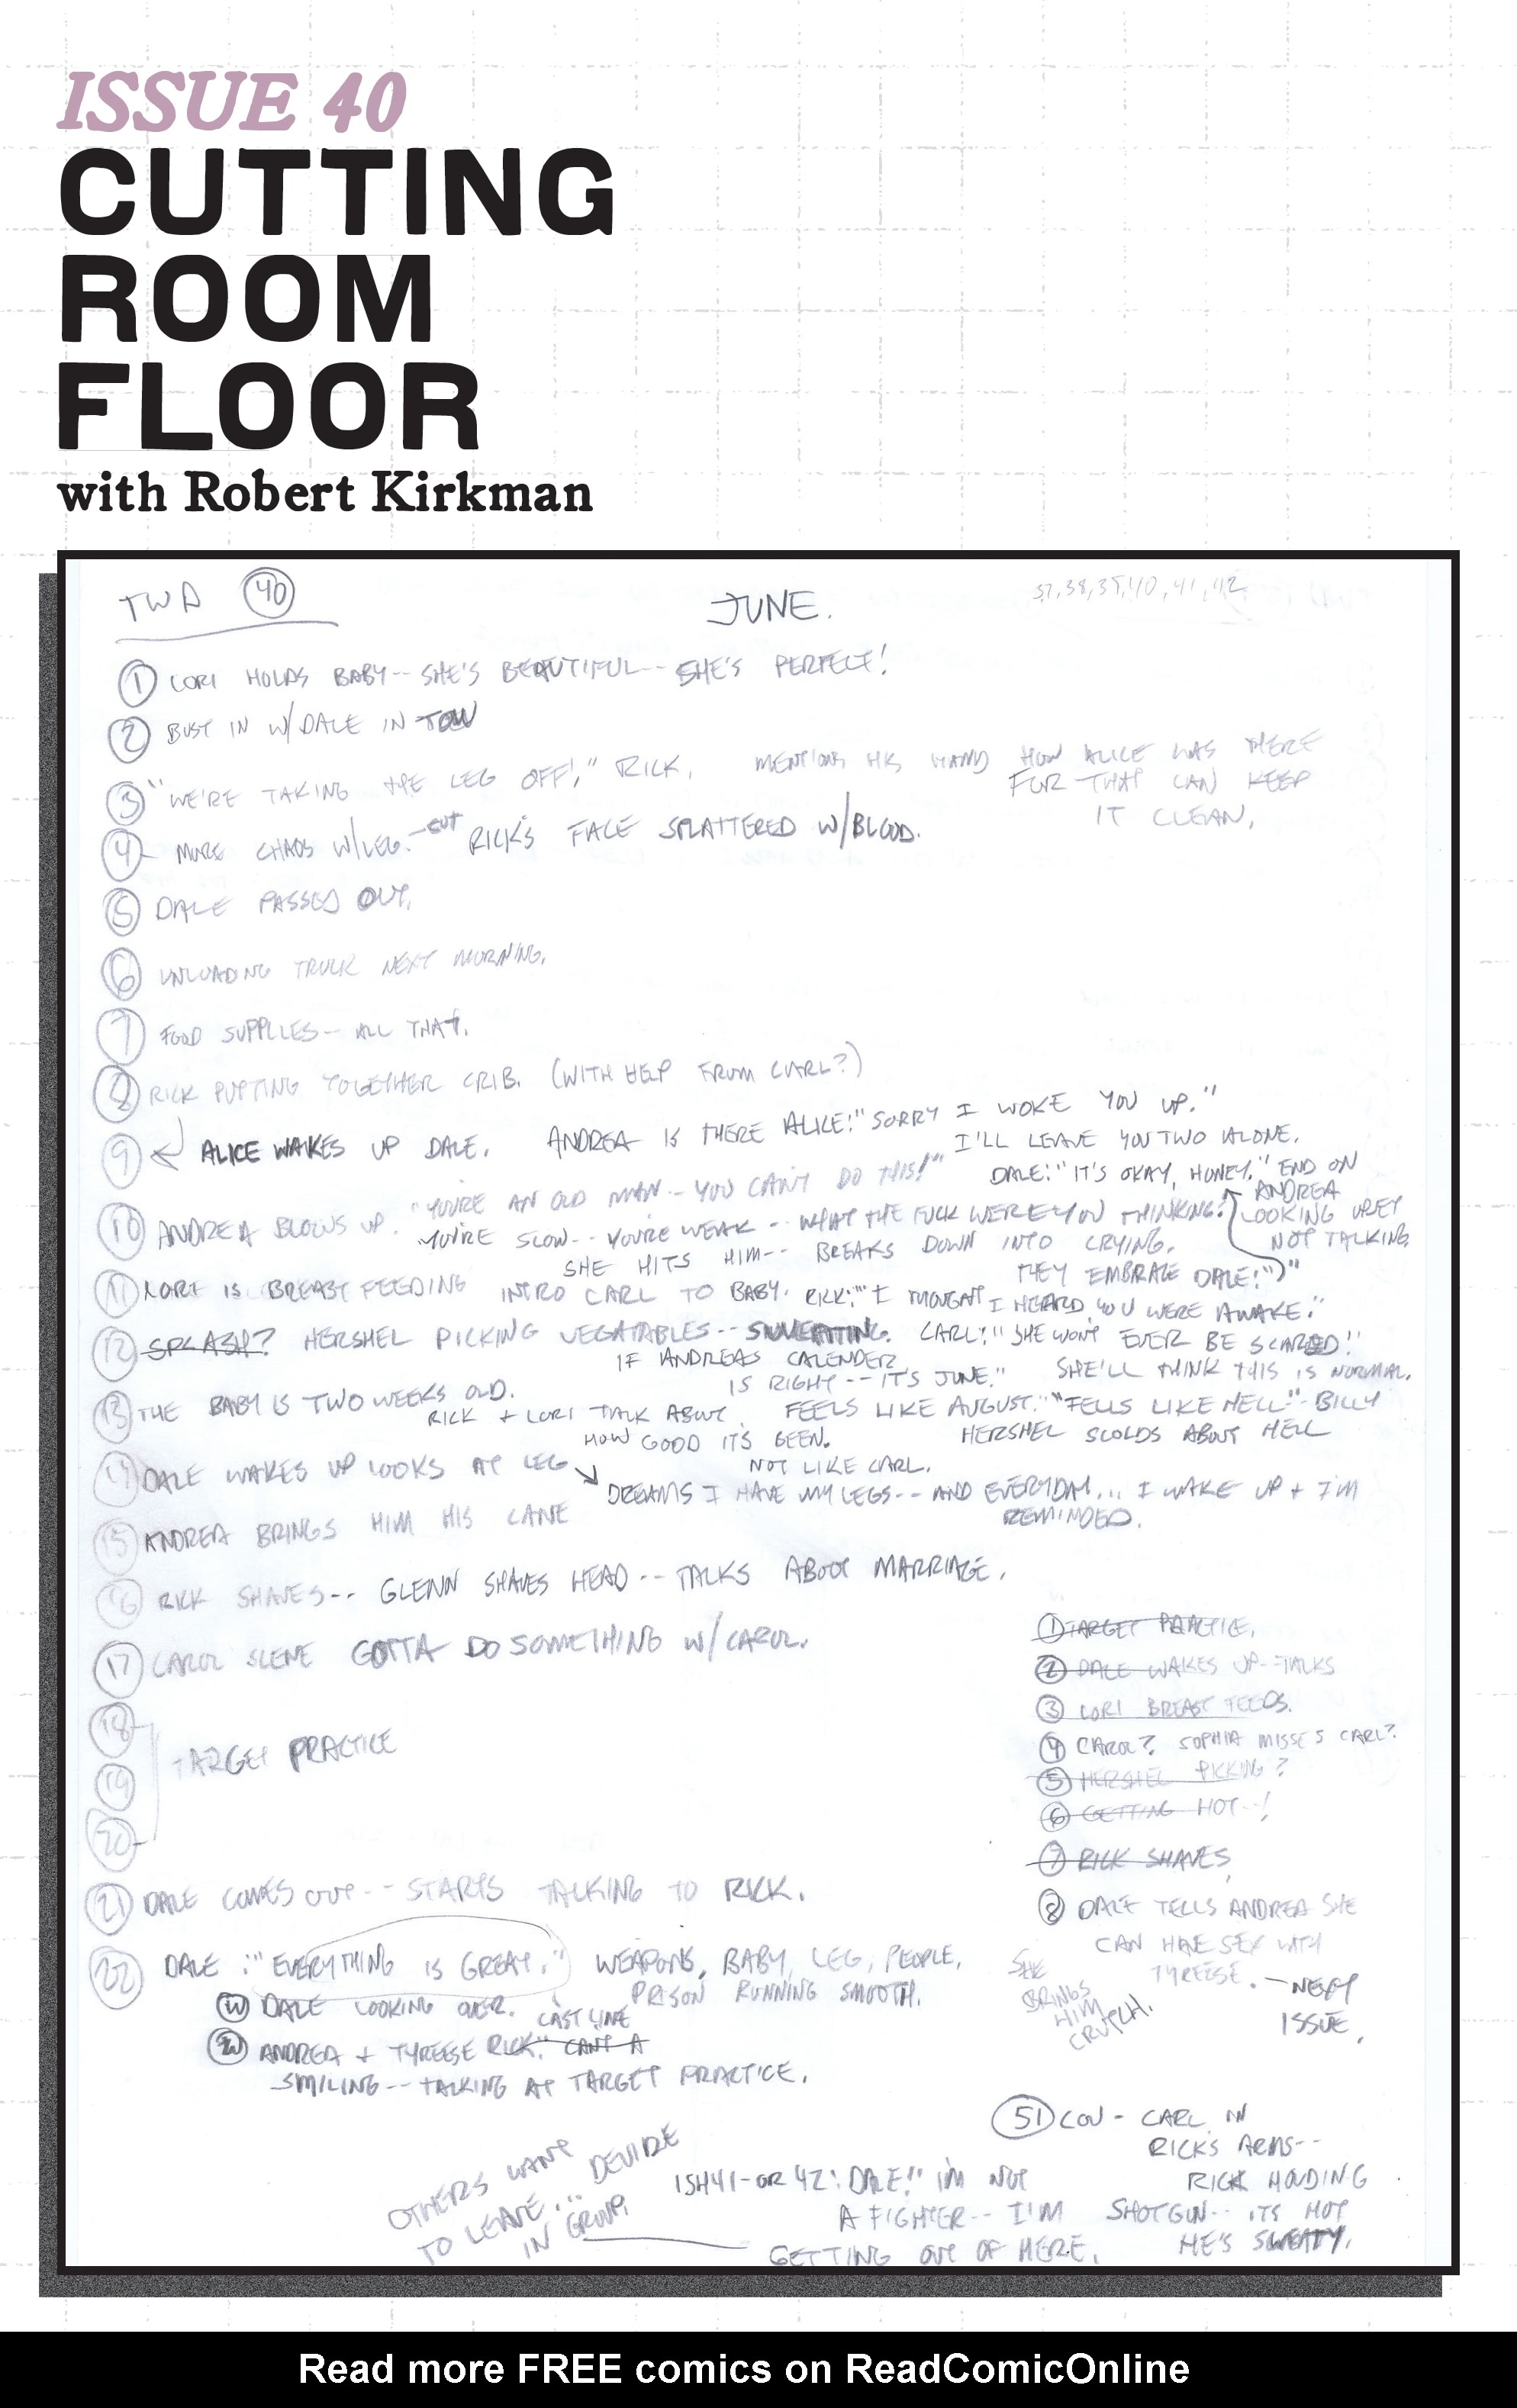 ISSUE 40
CUTTING
ROOM
FLOOR
with Robert Kirkman
TWD 40
JUNE.
37,38,39,40,41,42
1 LORI HOLDS BABY-- SHE'S BEAUTIFUL-- SHE'S PERFECT!
2 BUST IN W/DALE IN TOW
3 "WE'RE TAKING THE LEG OFF!" RICK. MENTIONS HIS HAND HOW ALICE WAS THERE
FOR THAT CAN KEEP
IT CLEAN.
4 MORE CHAOS W/LEG. -CUT RICK'S FACE SPLATTERED W/BLOOD.
5 DALE PASSED OUT.
6 UNLOADING TRUCK NEXT MORNING.
7 FOOD SUPPLIES-- ALL THAT.
8 RICK PUTTING TOGETHER CRIB. (WITH HELP FROM CARL?)
9 ALICE WAKES UP DALE. ANDREA IS THERE ALICE: "SORRY I WOKE YOU UP."
I'LL LEAVE YOU TWO ALONE.
DALE: "IT'S OKAY, HONEY." END ON
ANDREA
LOOKING UPSET
NOT TALKING
10 ANDREA BLOWS UP. "YOU'RE AN OLD MAN-- YOU CAN'T DO THIS!"
YOU'RE SLOW-- YOU'RE WEAK-- WHAT THE FUCK WERE YOU THINKING?
SHE HITS HIM-- BREAKS DOWN INTO CRYING.
THEY EMBRACE DALE: ")"
11 LORI IS BREAST FEEDING INTRO CARL TO BABY. RICK: "I THOUGHT I HEARD YOU WERE AWAKE."
CARL: "SHE WON'T EVER BE SCARED!"
SHE'LL THINK THIS IS NORMAL.
12 SPLASH? HERSHEL PICKING VEGATABLES-- SWEATING.
IF ANDREAS CALENDER
IS RIGHT-- IT'S JUNE."
FEELS LIKE AUGUST." "FELLS LIKE HELL"- BILLY
HERSHEL SCOLDS ABOUT HELL
13 THE BABY IS TWO WEEKS OLD.
RICK + LORI TALK ABOUT
HOW GOOD IT'S BEEN.
NOT LIKE CARL.
14 DALE WAKES UP LOOKS AT LEG
DREAMS I HAVE MY LEGS-- AND EVERYDAY... I WAKE UP + I'M
REMINDED.
15 ANDREA BRINGS HIM HIS CANE
16 RICK SHAVES-- GLENN SHAVES HEAD-- TALKS ABOUT MARRIAGE.
17 CAROL SCENE GOTTA DO SOMETHING W/CAROL.
18
19
20
TARGET PRACTICE
21 DALE COMES OUT-- STARTS TALKING TO RICK.
22 DALE: "EVERYTHING IS GREAT." WEAPONS, BABY, LEG, PEOPLE,
PRISON RUNNING SMOOTH.
DALE LOOKING OVER.
CAST LINE
ANDREA + TYREESE RICK: "CAN'T A
SMILING-- TALKING AT TARGET PRACTICE.
1 TARGET PRACTICE.
2 DALE WAKES UP-TALKS
3 LORI BREAST FEEDS.
4 CAROL? SOPHIA MISSES CARL?
5 HERSHEL PICKING?
6 GETTING HOT--!
7 RICK SHAVES
8 DALE TELLS ANDREA SHE
CAN HAVE SEX WITH
TYREESE. - NEXT
ISSUE.
SHE
BRINGS
HIM
CRUTCH.
51 COV - CARL IN
RICK'S ARMS--
RICK HOLDING
SHOTGUN-- ITS HOT
HE'S SWEATY.
OTHERS WANT
TO LEAVE... DEVIDE
IN GROUP
ISH 41-OR 42: DALE!" I'M NOT
A FIGHTER-- I'M
GETTING OUT OF HERE.
Read more FREE comics on ReadComicOnline